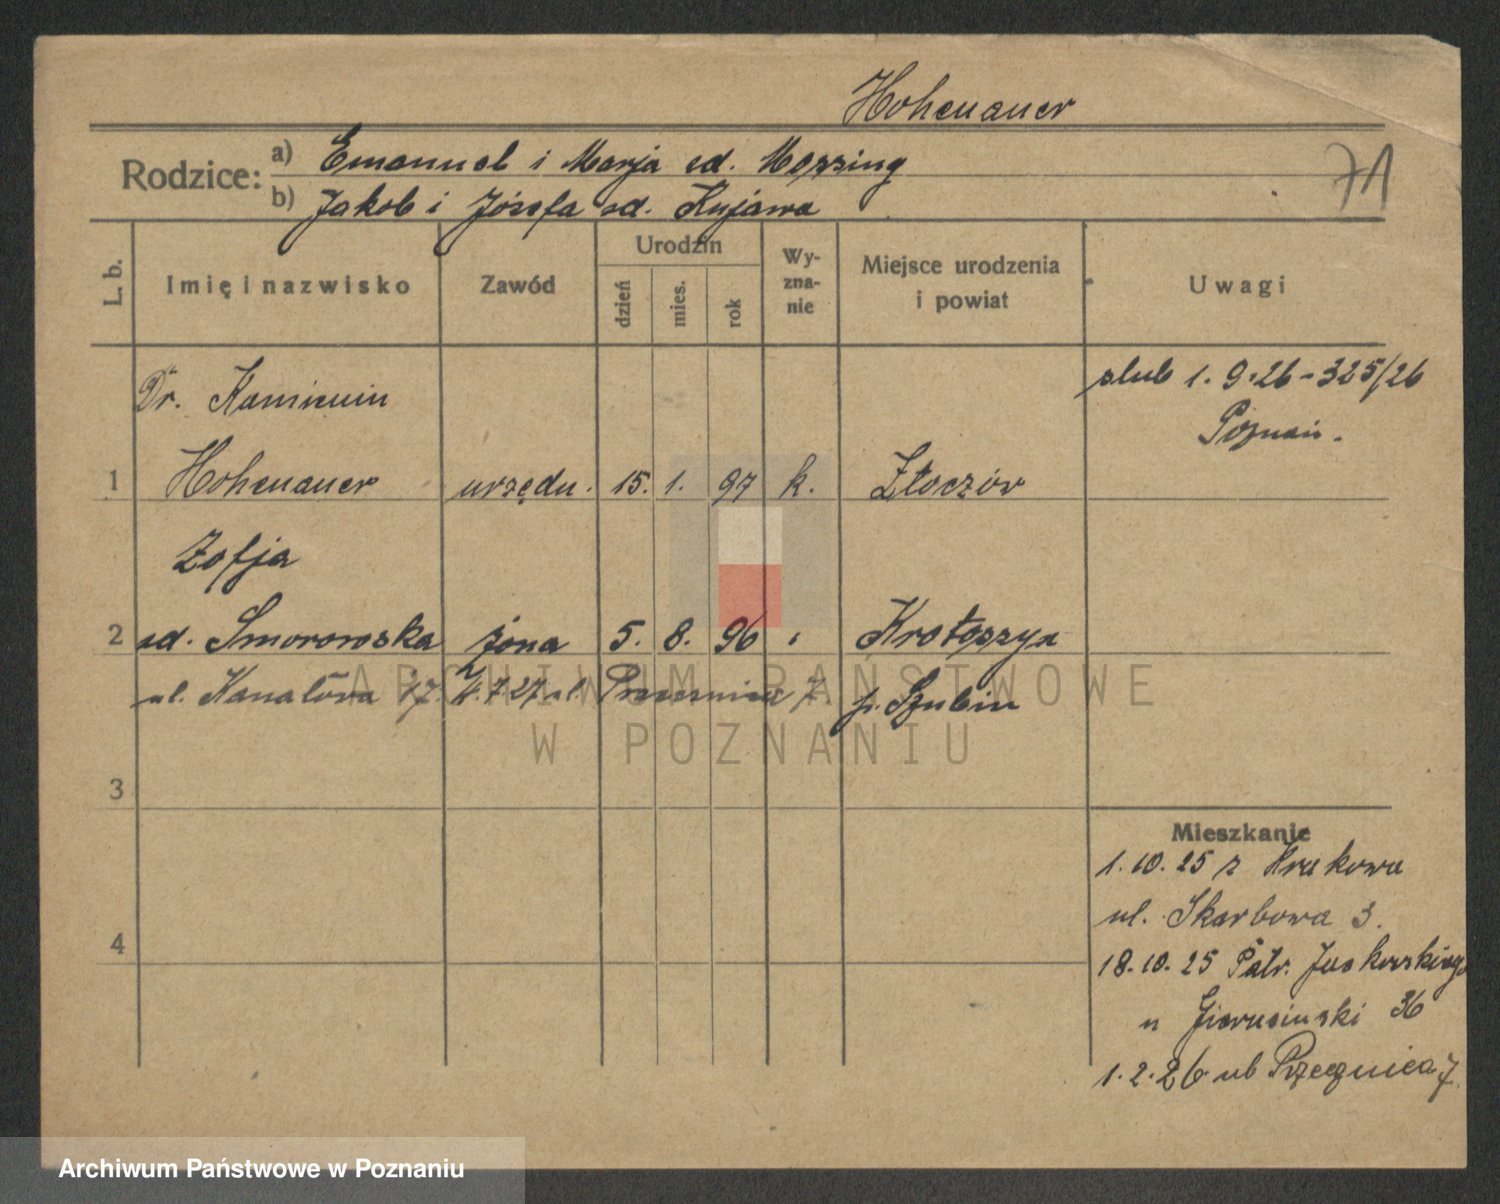 Hohenauer
Rodzice:
a) Emanuel i Marja zd. Messing
b) Jakób i Józefa zd. Kujawa
71
L. b.
Imię i nazwisko
Zawód
Urodzin
dzień
mies.
rok
Wy-
zna-
nie
Miejsce urodzenia
i powiat
Uwagi
Dr. Kamienin
ślub 1.9.26-325/26
Poznań.
1 Hohenauer urzędn. 15. 1. 97 k. Złoczów
Zofja
2 zd. Smorowska żona 5. 8. 96 Krotoszyn
ul. Kanałowa 17. 7.27 ul. 7. p. Szubin
3
4
Mieszkanie
1.10.25 z Krakowa
ul. Skarbowa 3.
18.10.25 Patr. Jackowskiego
36
1.2.26 ul. Przecznica 7.
ARCHIWUM PAŃSTWOWE
W POZNANIU
Archiwum Państwowe w Poznaniu